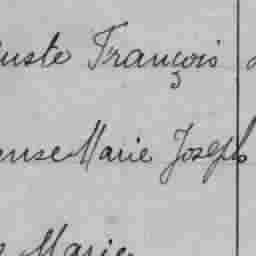 uste François
ense Marie Joseph
Marie